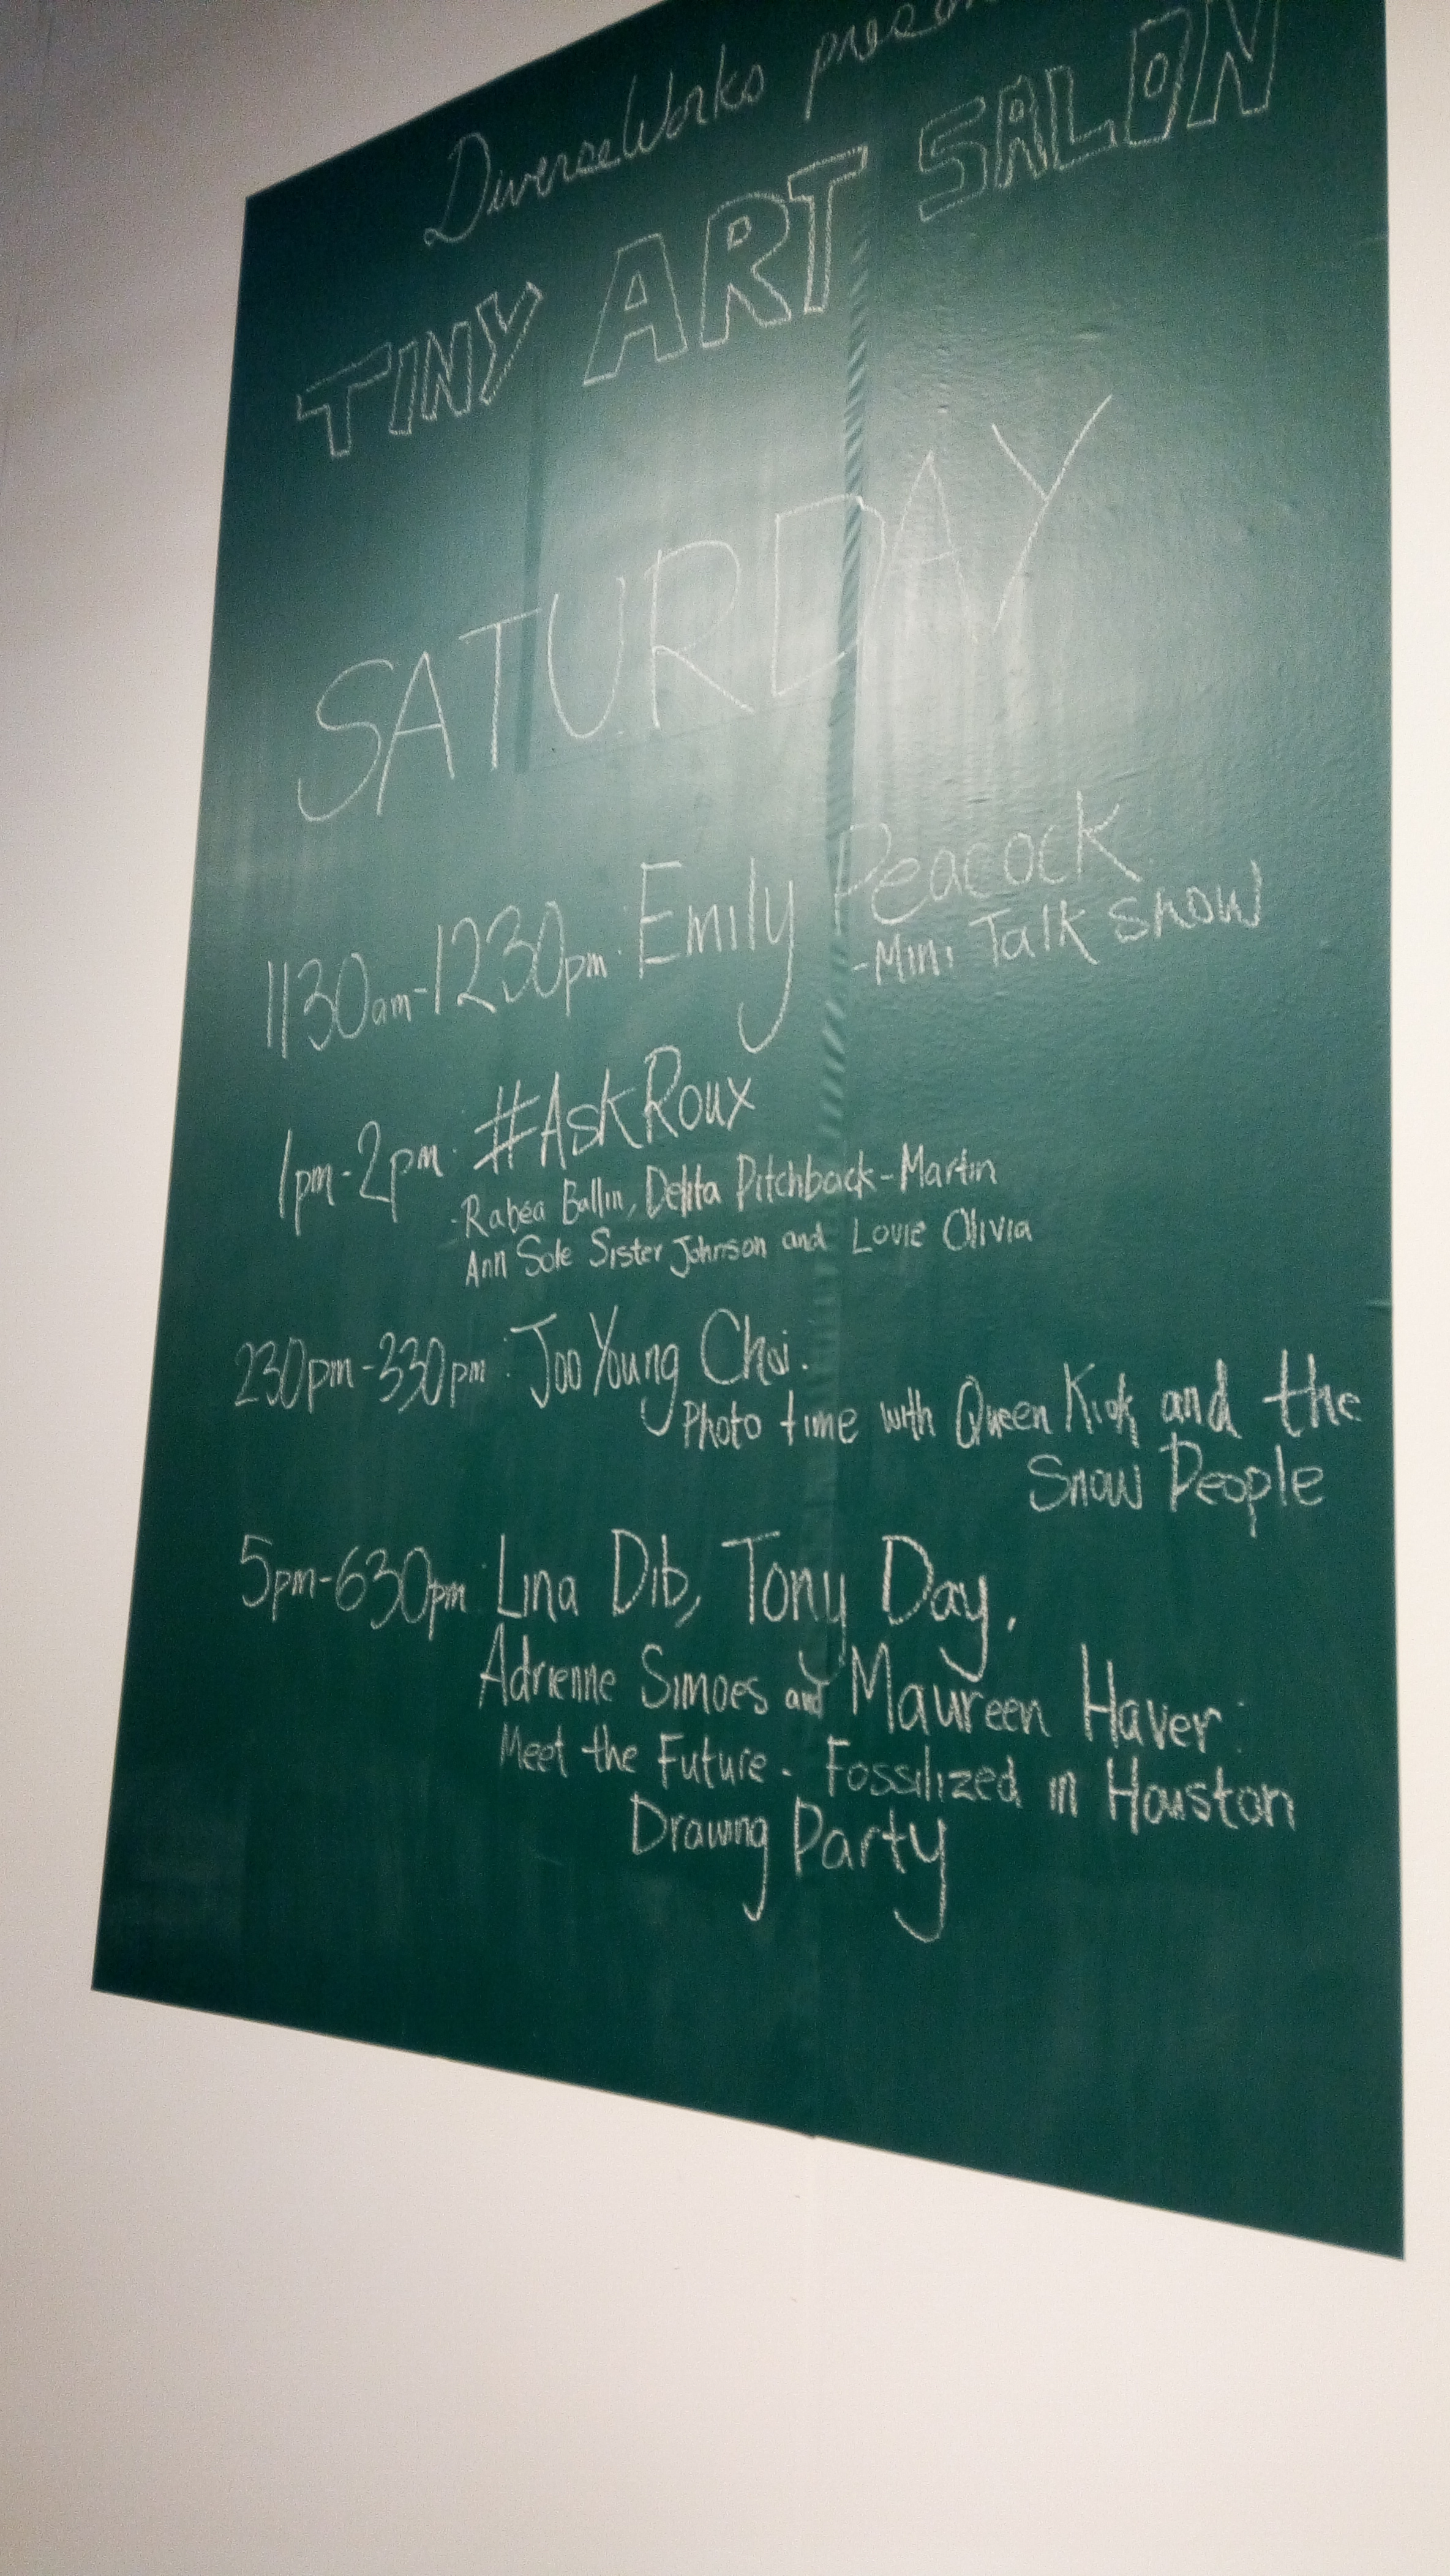 DiverseWorks
TINY ART SALON
SATURDAY
1130am-1230pm: Emily Peacock
-Mini Talk Show
1pm-2pm: #AskRoux
-Rabéa Ballin, Delita Pitchback-Martin
Ann Sole Sister Johnson and Lovie Olivia
230pm-330pm: Joo Young Choi.
Photo time with Queen Kiok and the
Snow People
5pm-630pm: Lina Dib, Tony Day,
Adrienne Simoes and Maureen Haver:
Meet the Future - Fossilized in Houston
Drawing Party